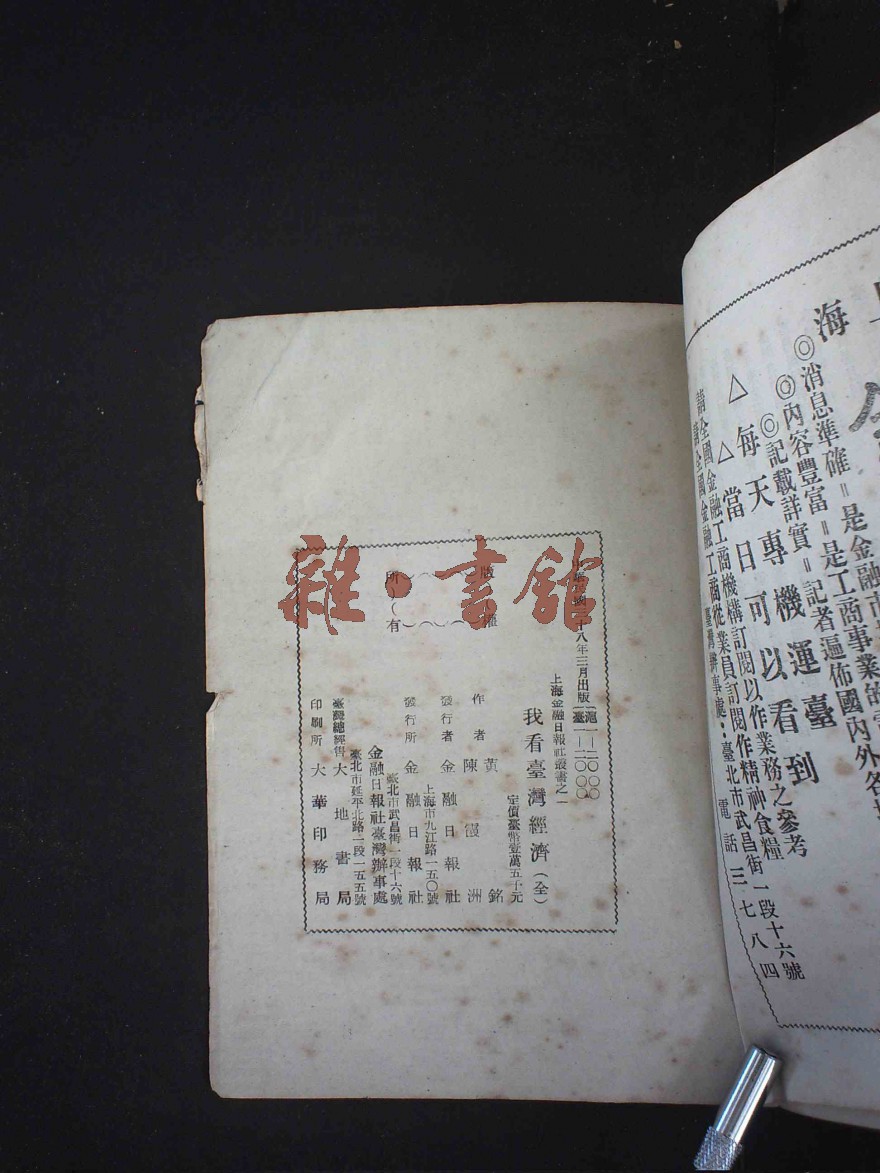 海
◎消息準確＝是金融市
◎內容豐富＝是工商事業的
◎記載詳實＝記者遍佈國內外各
△每天專機運臺
△當日可以看到
請全國金融工商機構訂閱以作業務之參考
請全國金融工商從業員訂閱作精神食糧
臺灣辦事處：臺北市武昌街一段十六號
電話三七八四
中華民國三十八年三月出版
滬一—二〇〇〇
臺一—二〇〇〇
上海金融日報社叢書之一
我看臺灣經濟（全）
定價臺幣壹萬五千元
版權
所有
作者 黃銘
陳霞洲
發行者 金融日報社
上海市九江路一五〇號
發行所 金融日報社
臺北市武昌街一段十六號
金融日報社臺灣辦事處
臺北市延平北路一段一五五號
臺灣總經售 大地書局
印刷所 大華印務局
雜·書館